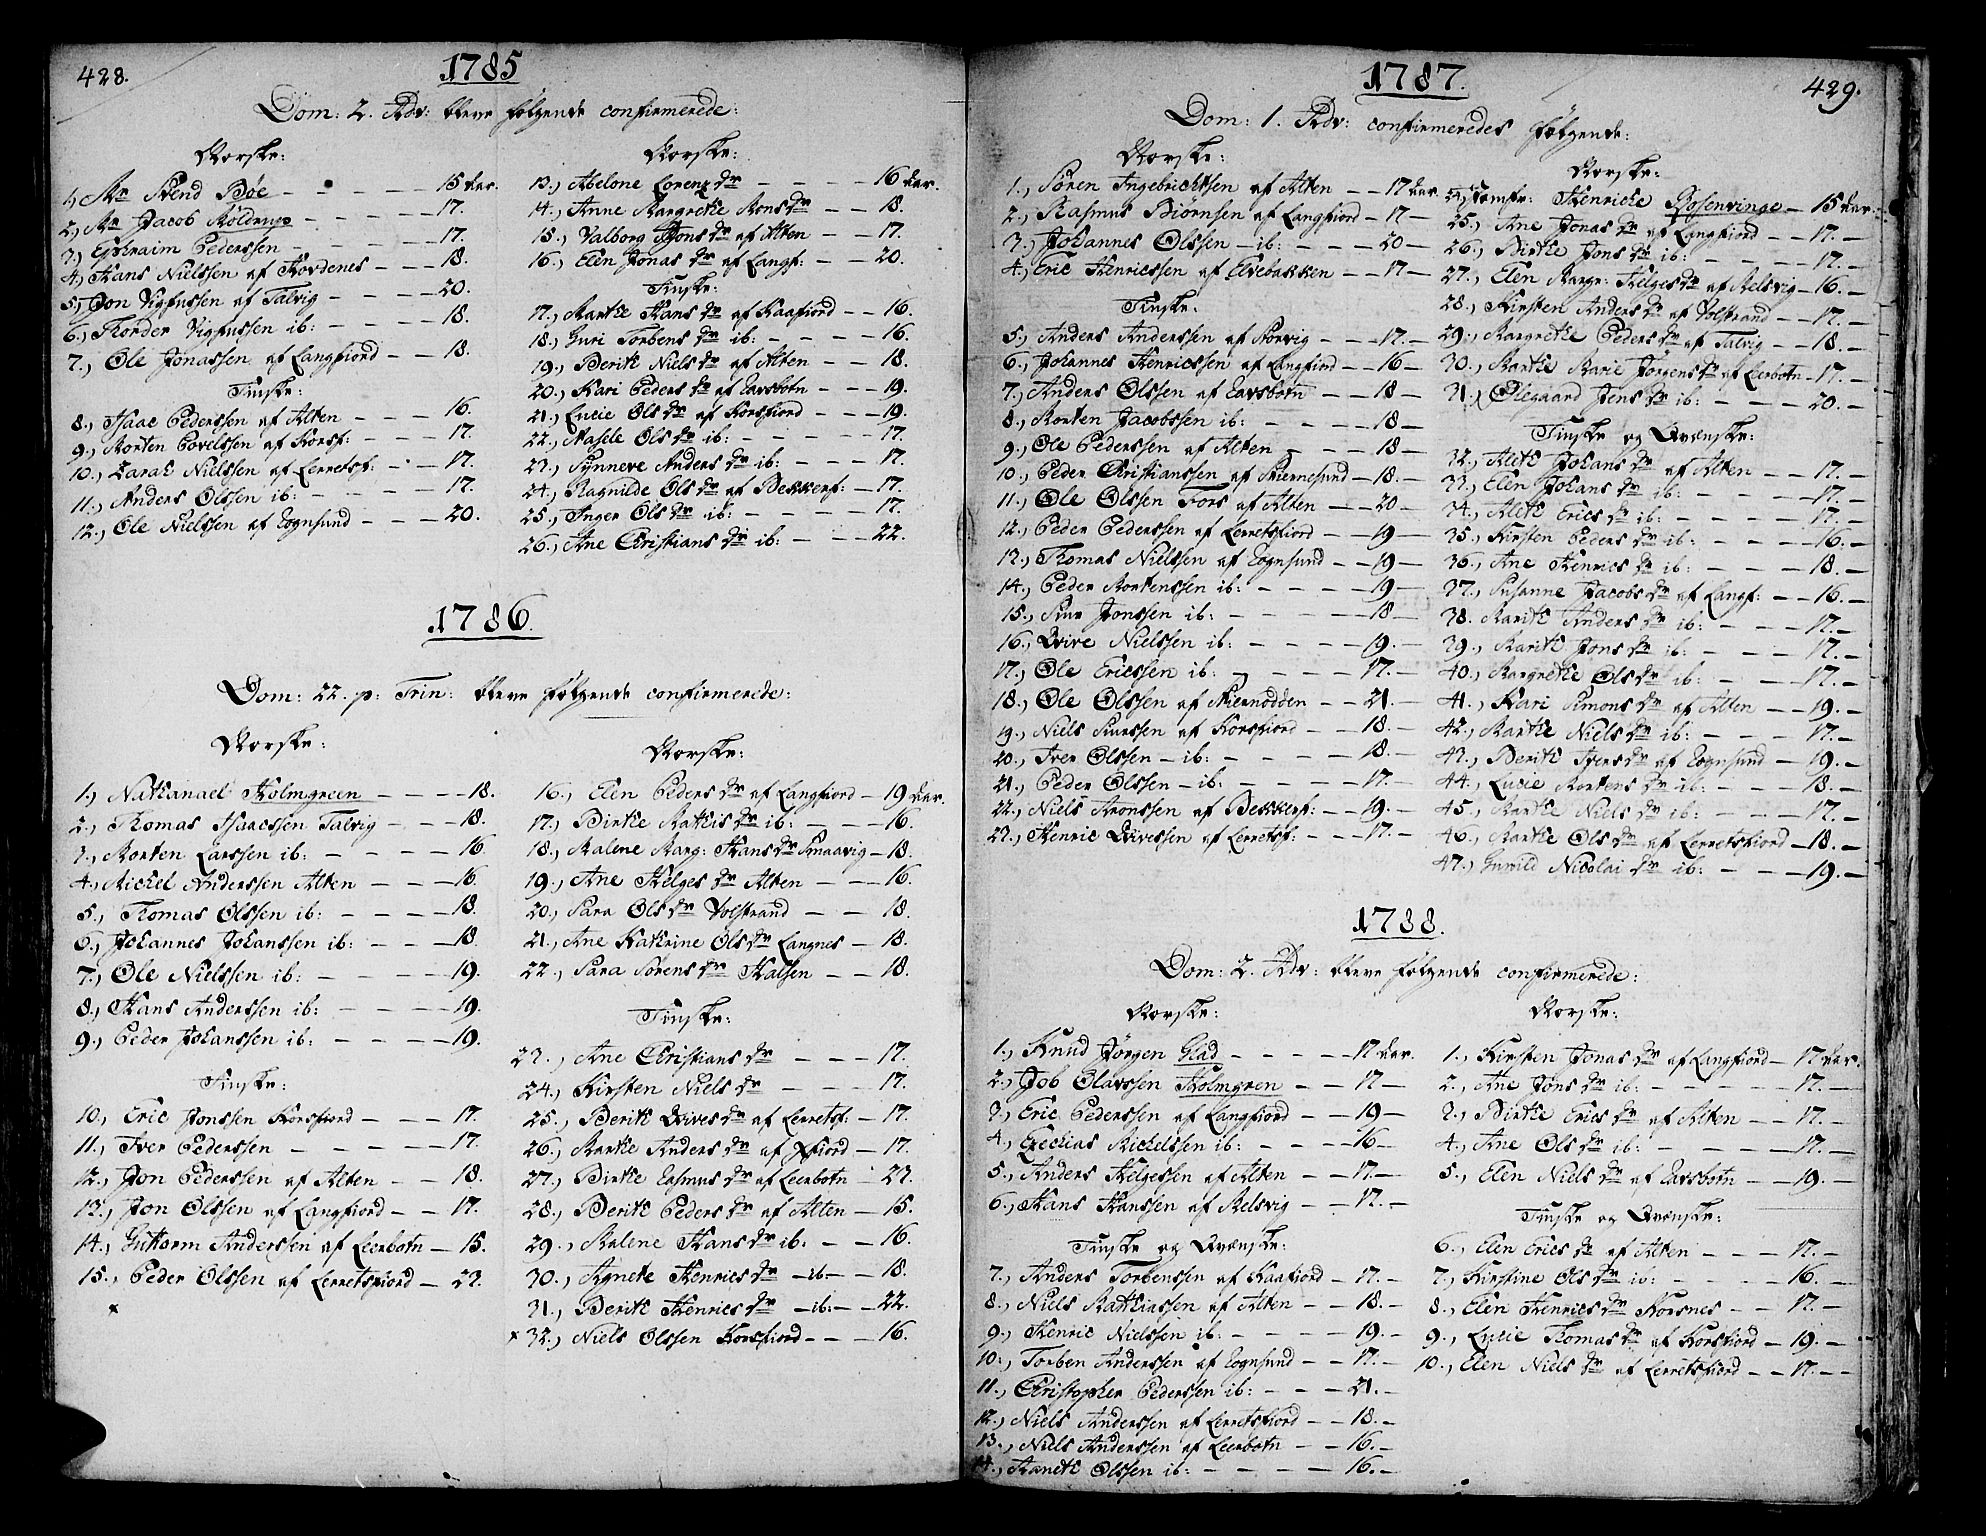 428.
1785
Dom: 2. Adv: bleve følgende confirmerede:
Norske:
1., Mr Svend Bøe — — — — 15 Aar.
2., Mr Jacob Røldrup — — — 17.
3., Ephraim Pederssen — — — 17.
4., Hans Nielssen af Hovdenes — — — 18.
5., Jon Vigfussen af Talvig — — — — 20.
6., Thorder Vigfussen ib: — — — — 18.
7., Ole Jonassen af Langfiord — — 18.
Finske:
8., Isaac Pederssen af Alten — — — 16.
9., Morten Povelssen af Korsf: — — 17.
10., Zarak Nielssen af Lerretsf: — — 17.
11., Anders Olssen ib: — — — — 17.
12., Ole Nielssen af Rognsund — — — 20.
Norske:
13., Abelone Lorenz dr — — — — 16 Aar.
14., Anne Margrethe Mons dr — — 18.
15., Valborg Jons dr af Alten — — 17.
16., Elen Jonas dr af Langf: — — 20.
Finske:
17., Marthe Hans dr af Kaafiord — — 16.
18., Guri Torbens dr ib: — — — — 16.
19., Berith Niels dr af Alten — — — 18.
20., Kari Peders dr af Ravsbotn — — — 19.
21., Lucie Ols dr af Korsfiord — — — 19.
22., Masele Ols dr ib: — — — — 17.
23., Synneve Anders dr ib: — — — 17.
24., Ragnilde Ols dr af Bekkerf: — 17.
25., Inger Ols dr ib: — — — — 17.
26., Ane Christians dr ib: — — — 22.
1786.
Dom: 22. p: Trin: bleve følgende confirmerede:
Norske:
1., Nathanael Holmgreen — — — — 18.
2., Thomas Isaacssen Talvig — — — 18.
3., Morten Larssen ib: — — — — 16
4., Michel Anderssen Alten — — — 16.
5., Thomas Olssen ib: — — — — 18.
6., Johannes Johanssen ib: — — — 18.
7., Ole Nielssen ib: — — — — 19.
8., Hans Anderssen ib: — — — — 19.
9., Peder Johanssen ib: — — — — 19.
Finske:
10., Eric Jonssen Korsfiord — — — — 17.
11., Iver Pederssen — — — — — 17.
12., Jon Pederssen af Alten — — — 18.
13., Jon Olssen af Langfiord — — 17.
14., Guttorm Anderssen af Leerbotn — 15.
15., Peder Olssen af Lerretsfiord — 23.
×
Norske:
16., Elen Peders dr af Langfiord — 19 Aar.
17., Birthe Mathis dr ib: — — — 16.
18., Malene Marg: Hans dr Smaavig — 18.
19., Ane Helges dr Alten — — — 16.
20., Sara Ols dr Volstrand — — 18.
21., Ane Kathrine Ols dr Langnes — 18.
22., Sara Sørens dr Halsen — — 18.
Finske:
23., Ane Christians dr — — — 17.
24., Kirsten Niels dr — — — 17.
25., Berith Qvives dr af Lerretsf: — 17.
26., Marthe Anders dr af Xfiord — 17.
27., Birthe Rasmus dr af Leerbotn — 23.
28., Berith Peders dr af Alten — 15.
29., Malene Hans dr ib: — — — 16.
30., Agnete Henrics dr — ib — — 18.
31., Berith Henrics dr — ib: — — 22.
× 32., Niels Olssen Korsfiord — — — 16.
429.
1787.
Dom: 1. Adv: confirmeredes følgende:
Norske:
1., Søren Ingebrichtsen af Alten — — 17 Aar.
2., Rasmus Biørnsen af Langfiord — 17 —
3., Johannes Olssen — ib: — — — 20 —
4., Eric Henricssen af Elvebakken — — 17 —
Finske:
5., Anders Anderssen af Storvig — — — 17. —
6., Johannes Henricssen af Langfiord — — 16 —
7., Anders Olssen af Ravsbotn — — — 18 —
8., Morten Jacobssen ib: — — — — 18 —
9., Ole Pederssen af Alten — — — 18 —
10., Peder Christianssen af Stiernesund — 18. —
11., Ole Olssen Fors af Alten — — 20 —
12., Peder Pederssen af Lerretsfiord — — 19 —
13., Thomas Nielssen af Rognsund — — 19 —
14., Peder Mortenssen ib: — — — — 19 —
15., Siur Jonssen ib: — — — — 18 —
16., Qvive Nielssen ib: — — — — 19. —
17., Ole Ericssen ib: — — — — 17. —
18., Ole Olssen af Stiernodden — — 21. —
19., Niels Siurssen af Korsfiord — — 18. —
20., Iver Olssen — ib: — — — — 18. —
21., Peder Olssen — ib: — — — — 17. —
22., Niels Aronssen af Bekkerf: — — 19. —
23., Henric Qvivessen af Lerretsf: — — — 17. —
Norske:
24, Jomfr: Henricke Rosenvinge — 15 Aar.
25., Ane Jonas dr af Langfiord — — 17. —
26., Birthe Jons dr ib: — — — — 17. —
27., Elen Margr: Helges dr af Melsvig — 16. —
28., Kirsten Anders dr af Volstrand — — 17. —
29., Margrethe Peders dr af Talvig — — 18. —
30., Marthe Marie Jørgens dr af Leerbotn — 17. —
31., Olegaard Jens dr ib: — — — — 20. —
Finske og Qvænske:
32., Alith Johans dr af Alten — — 17. —
33., Elen Johans dr ib: — — — — 17. —
34., Alith Erics dr ib: — — — — 17. —
35., Kirsten Peders dr ib: — — — — 16. —
36., Ane Henrics dr ib: — — — — 18. —
37., Susanne Jacobs dr af Langf: — — 16. —
38. Marith Anders dr ib: — — — 17. —
39., Marith Jons dr ib: — — — — 17. —
40., Margrethe Ols dr ib: — — — 17. —
41., Kari Simons dr af Alten — — 19. —
42., Marthe Niels dr ib: — — — 17. —
43., Berith Ivers dr af Rognsund — — 19. —
44., Lucie Mortens dr ib: — — — 18. —
45., Marthe Niels dr ib: — — — 17. —
46., Marthe Ols dr af Lerretsfiord — 18. —
47., Gunild Nicolai dr ib: — — — 19. —
1788.
Dom: 2. Adv: bleve følgende confirmerede:
Norske:
1., Knud Jørgen Glad — — — — 17 Aar.
2., Job Olavssen Holmgren — — 17 —
3., Eric Pederssen af Langfiord — — 19 —
4., Ezechias Michelssen ib: — — — 16 —
5., Anders Helgessen af Alten — — 17. —
6., Hans Hanssen af Melsvig — — 17. —
Finske og Qvænske:
7., Anders Torbenssen af Kaafiord — 17. —
8., Niels Mathiassen af Alten — — 18. —
9., Henric Nielssen ib: — — — — 19. —
10., Torben Anderssen af Rognsund — 17. —
11., Christopher Pederssen ib: — — — 21. —
12., Niels Anderssen af Lerretsfiord — — 18. —
13., Niels Anderssen af Leerbotn — — 16. —
14., Hanck Olssen ib: — — — — 16. —
Norske:
1., Kirsten Jonas dr af Langfiord — 17 Aar.
2., Ane Jons dr ib: — — — — 17. —
3., Birthe Erics dr af Alten — — 17. —
4., Ane Ols dr ib: — — — — 17. —
5., Elen Niels dr af Ravsbotn — — 19. —
Finske og Qvænske:
6., Elen Erics dr af Alten — — — 17. —
7., Kirstine Ols dr ib: — — — — 16. —
8., Elen Henrics dr Korsnes — — 17. —
9., Lucie Thomas dr af Korsfiord — 19. —
10., Elen Niels dr af Lerretsfiord — — 17. —